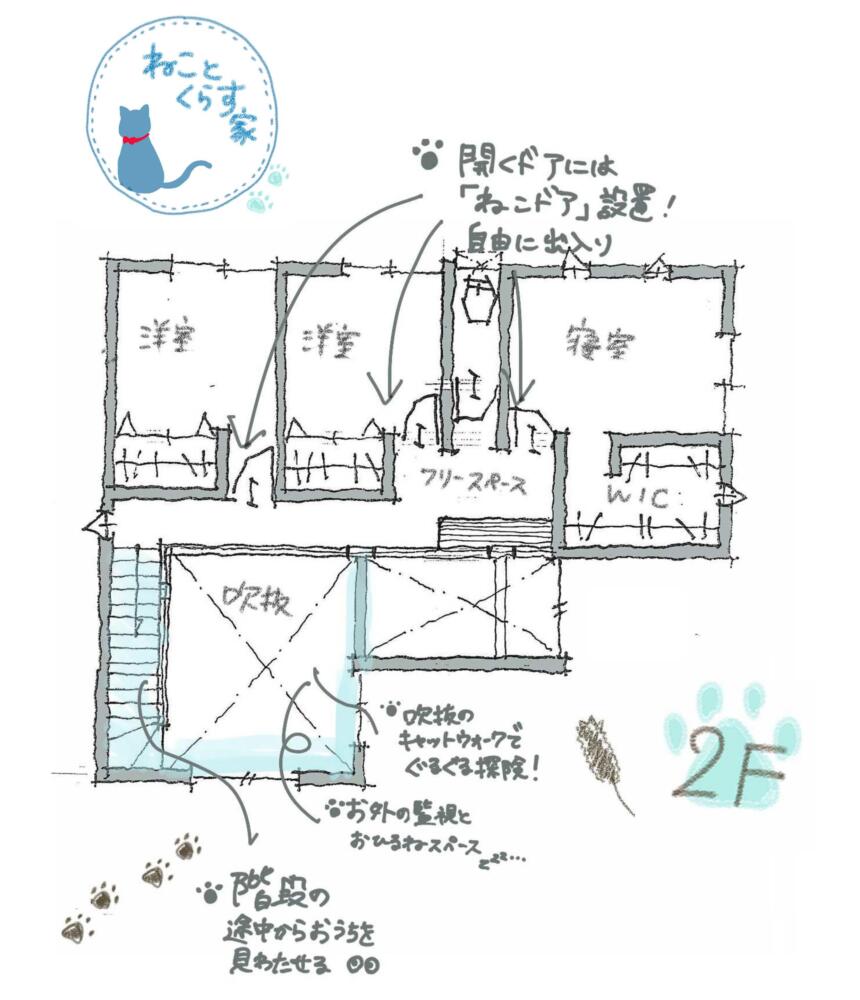 ねこと
くらす
家
開くドアには
「ねこドア」設置!
自由に出入り
洋室
洋室
寝室
フリースペース
WIC
吹抜
吹抜の
キャットウォークで
ぐるぐる探険!
お外の監視と
おひるねスペース
zzz...
2F
階段の
途中からおうちを
見わたせる